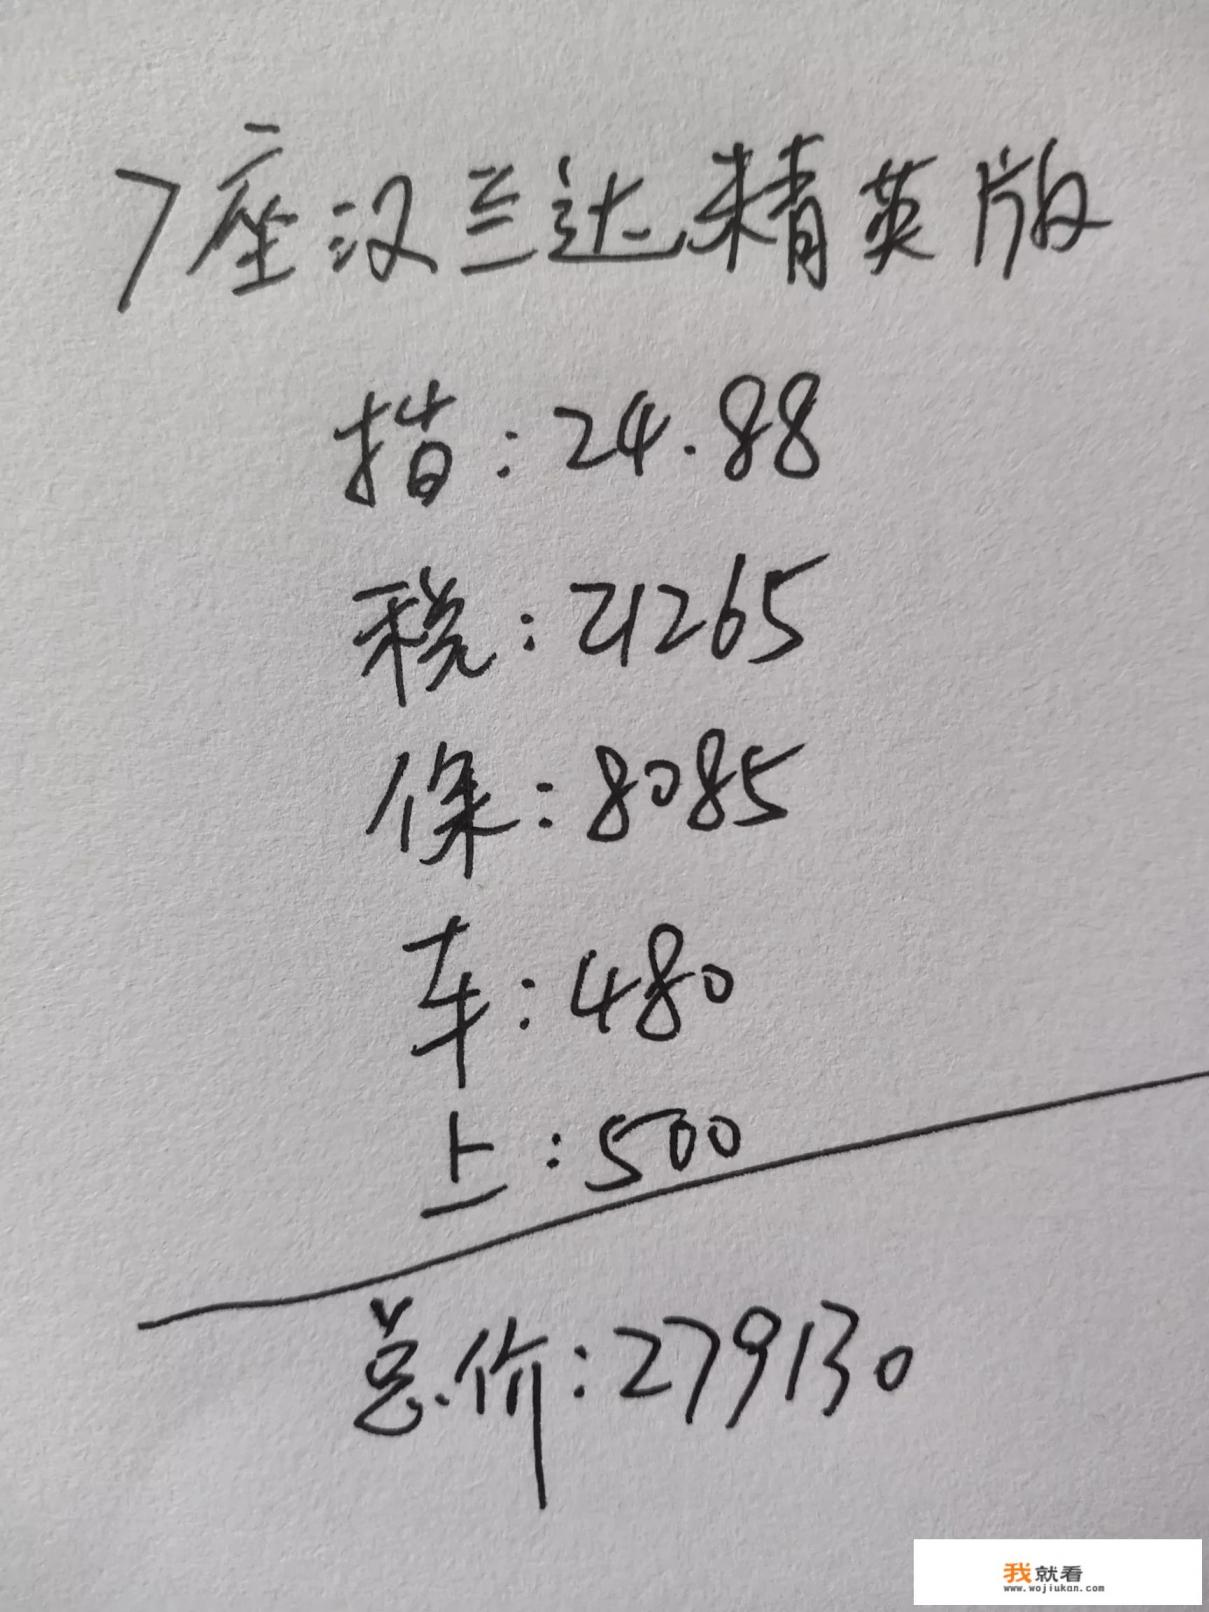 7座汉兰达精英版
指:24.88
税:21265
保:8085
车:480
上:500
总价:279130
我就看
www.wojiukan.com